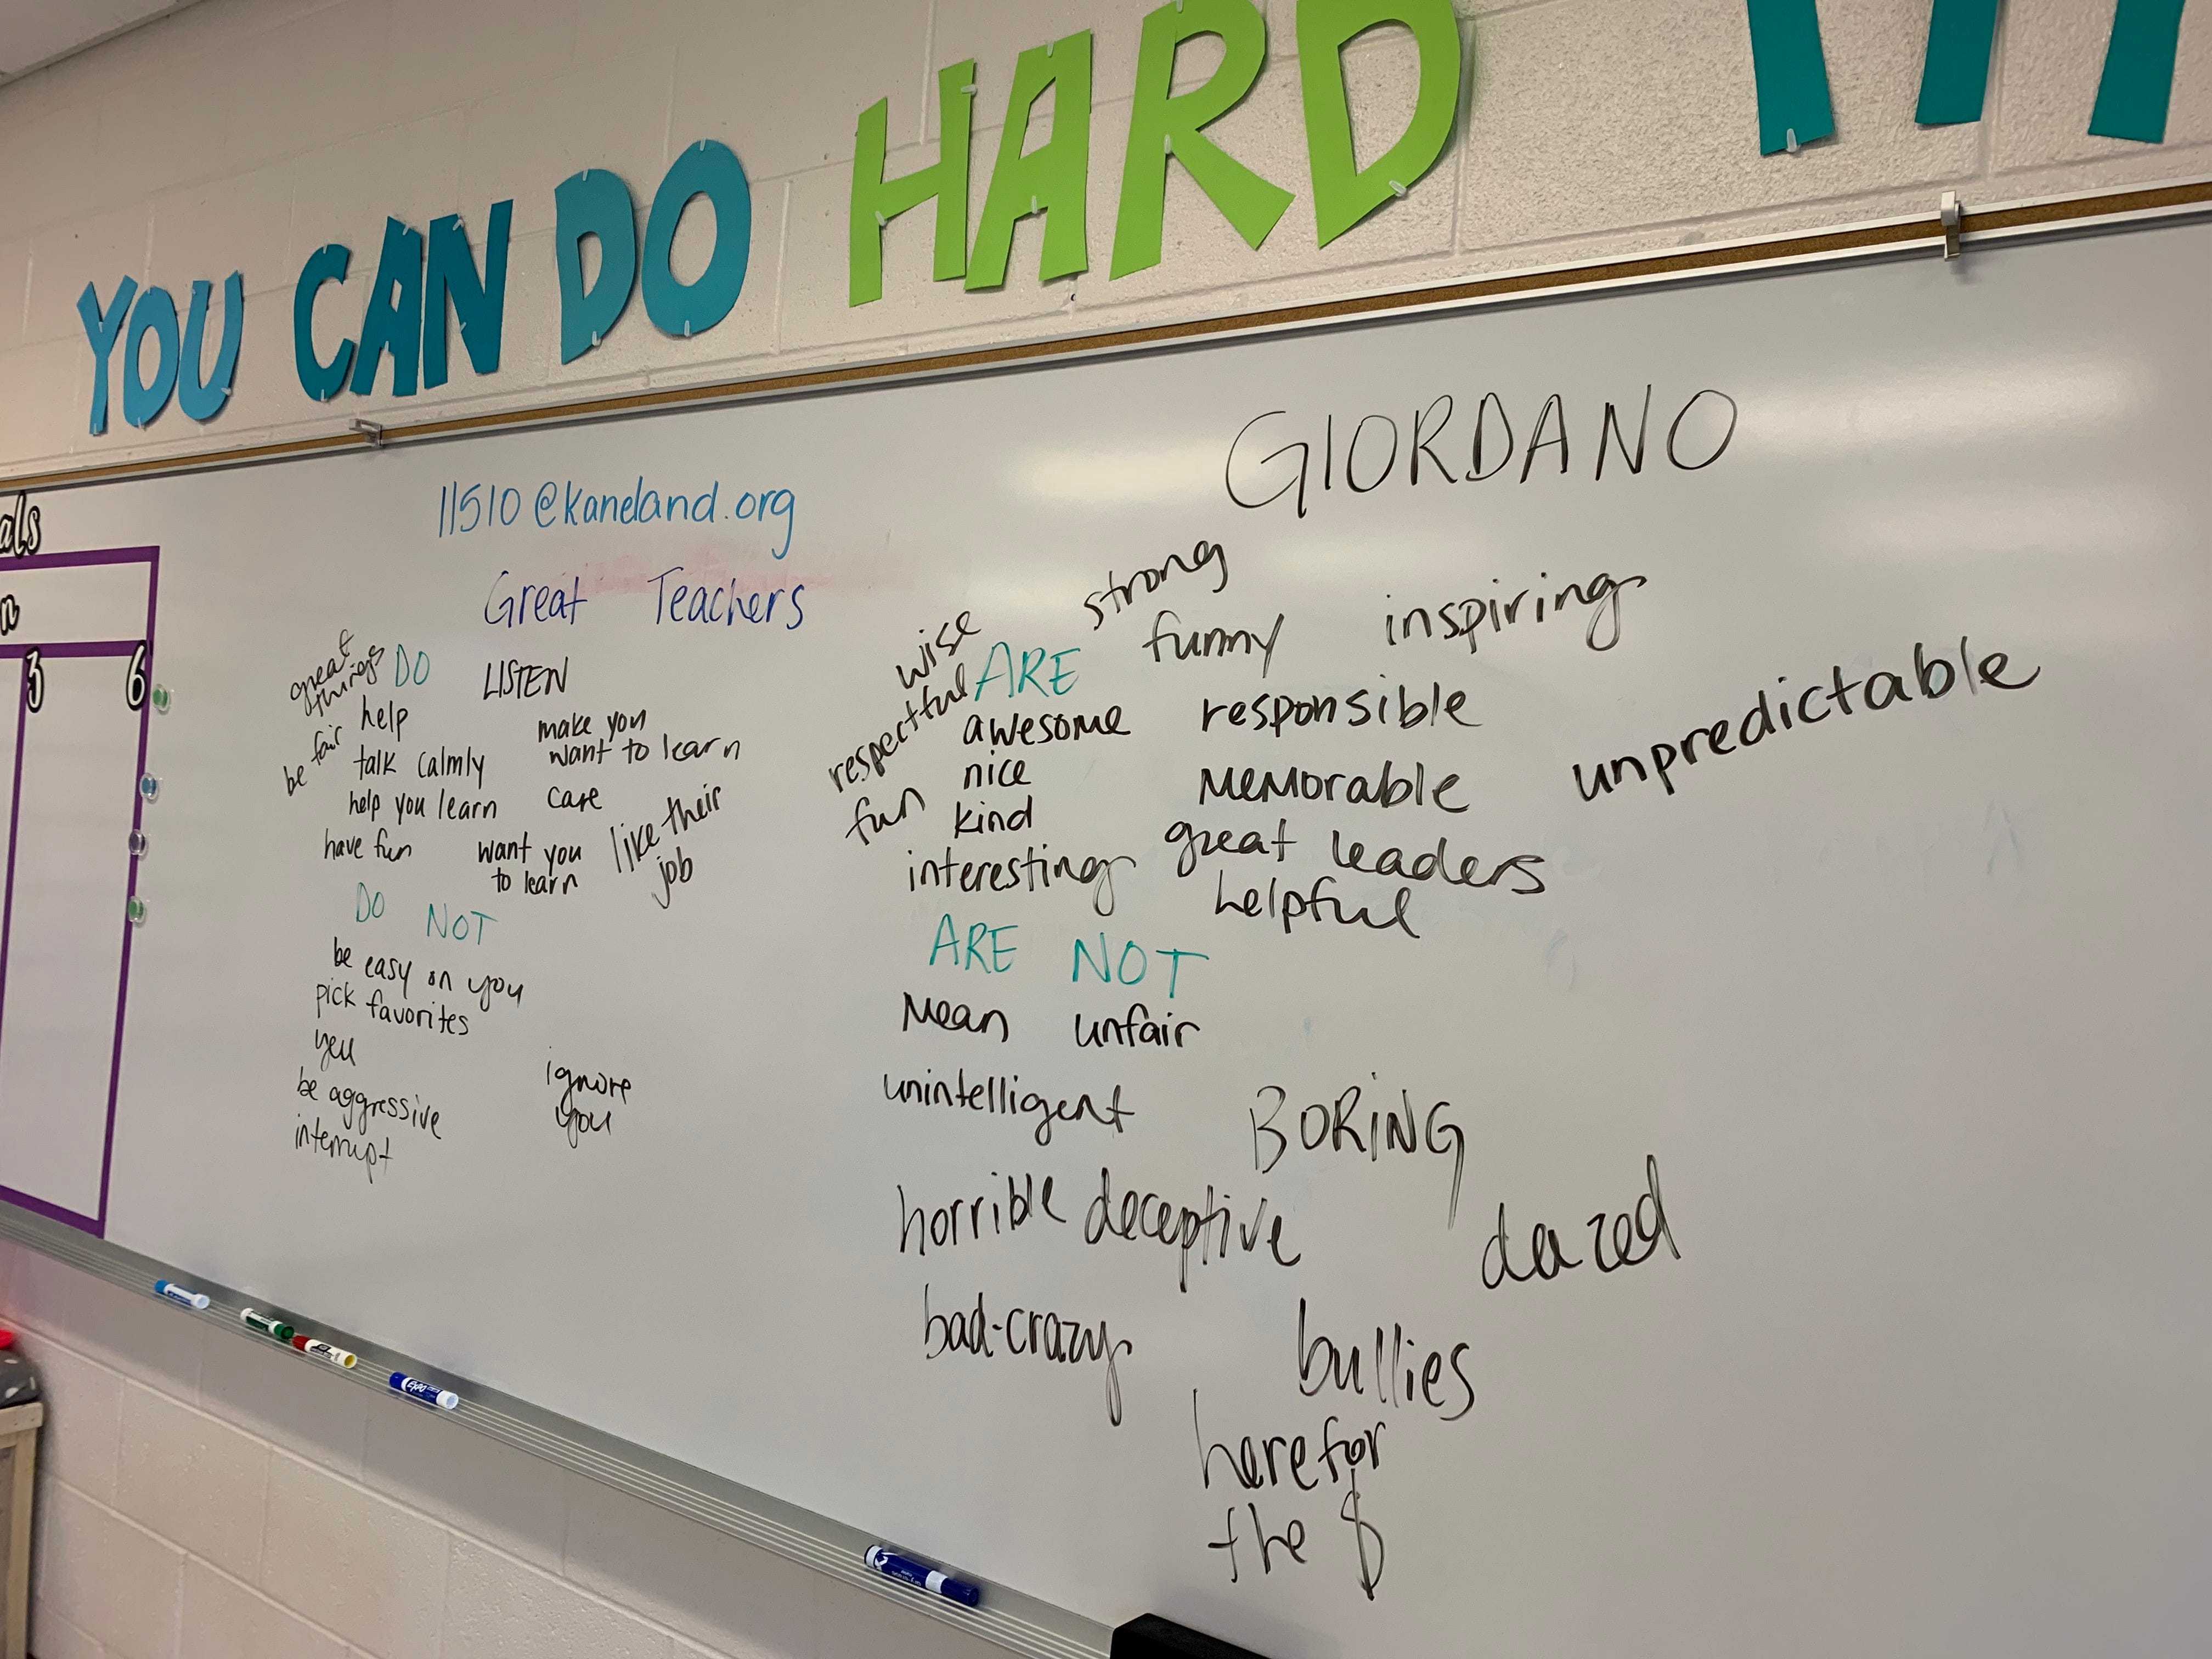 YOU CAN DO HARD
GIORDANO
11510@kaneland.org
Great Teachers
als
n
3 6
great
things
be fair
DO
LISTEN
help
talk calmly
help you learn
have fun
make you
want to learn
care
want you
to learn
like their
job
DO NOT
be easy on you
pick favorites
yell
be aggressive
interrupt
ignore
you
wise
respectful
fun
ARE
strong
funny
inspiring
awesome
nice
kind
interesting
responsible
memorable
great leaders
helpful
unpredictable
ARE NOT
mean unfair
unintelligent
BORING
horrible deceptive
dazed
bad-crazy
bullies
here for
the $
EXPO